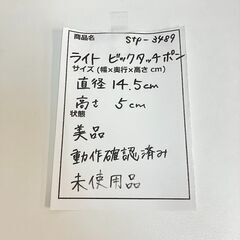 商品名 stp-3489
ライト ビックタッチポン
サイズ(幅×奥行×高さcm)
直径 14.5cm
高さ 5cm
状態
美品
動作確認済み
未使用品